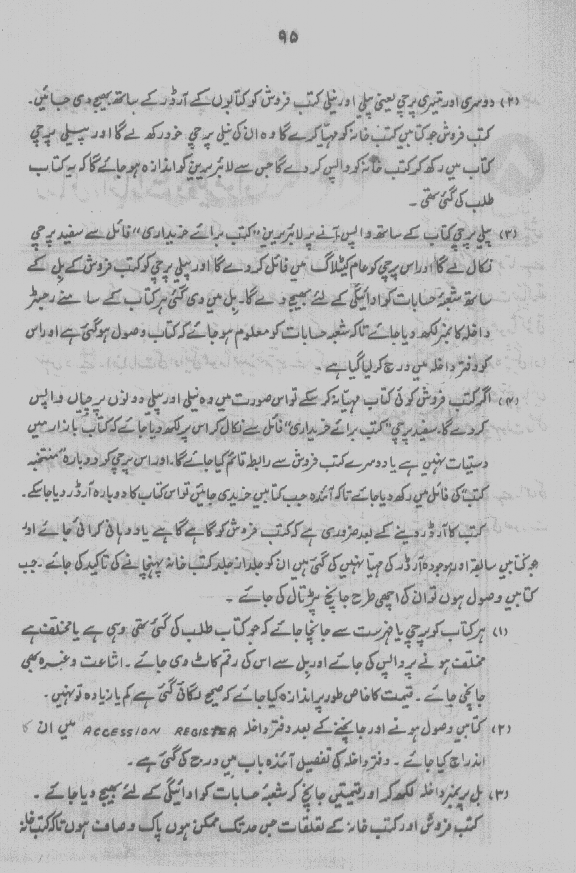 ۹۵
(۲) دوسری اور تیسری پرچی یعنی پیلی اور نیلی کتب فروش کو کتابوں کے آرڈر کے ساتھ بھیج دی جائیں۔
کتب فروش جو کتابیں کتب خانہ کو مہیا کرے گا وہ ان کی نیلی پرچی خود رکھ لے گا اور پیلی پرچی
کتاب میں رکھ کر کتب خانہ کو واپس کر دے گا جس سے لائبریرین کو اندازہ ہو جائے گا کہ یہ کتاب
طلب کی گئی تھی۔
(۳) پیلی پرچی کتاب کے ساتھ واپس آنے پر لائبریرین "کتب برائے خریداری" فائل سے سفید پرچی
نکال لے گا اور اس پرچی کو عام کیٹلاگ میں فائل کر دے گا اور پیلی پرچی کو کتب فروش کے بل کے
ساتھ شعبۂ حسابات کو ادائیگی کے لئے بھیج دے گا۔ بل میں دی گئی ہر کتاب کے سامنے رجسٹر
داخلہ کا نمبر لکھ دیا جائے تاکہ شعبہ حسابات کو معلوم ہو جائے کہ کتاب وصول ہو گئی ہے اور اس
کو دفتر داخلہ میں درج کر لیا گیا ہے۔
(۴) اگر کتب فروش کوئی کتاب مہیا نہ کر سکے تو اس صورت میں وہ نیلی اور پیلی دونوں پرچیاں واپس
کر دے گا۔ سفید پرچی "کتب برائے خریداری" فائل سے نکال کر اس پر لکھ دیا جائے کہ کتاب بازار میں
دستیاب نہیں ہے یا دوسرے کتب فروش سے رابطہ قائم کیا جائے گا۔ اور اس پرچی کو دوبارہ "منتخبہ
کتب" کی فائل میں رکھ دیا جائے تاکہ آئندہ جب کتابیں خریدی جائیں تو اس کتاب کا دوبارہ آرڈر دیا جا سکے۔
کتب کا آرڈر دینے کے بعد ضروری ہے کہ کتب فروش کو گاہے گاہے یاددہانی کرائی جائے اور
جو کتابیں سابقہ اور موجودہ آرڈر کی مہیا نہیں کی گئی ہیں ان کو جلد از جلد کتب خانہ پہنچانے کی تاکید کی جائے۔ جب
کتابیں وصول ہوں تو ان کی اچھی طرح جانچ پڑتال کی جائے۔
(۱) ہر کتاب کو پرچی یا فہرست سے جانچا جائے کہ جو کتاب طلب کی گئی تھی وہی ہے یا مختلف ہے
مختلف ہونے پر واپس کی جائے اور بل سے اس کی رقم کاٹ دی جائے۔ اشاعت وغیرہ بھی
جانچی جائے۔ قیمت کا خاص طور پر اندازہ کیا جائے کہ صحیح لگائی گئی ہے کم یا زیادہ تو نہیں۔
(۲) کتابیں وصول ہونے اور جانچنے کے بعد دفتر داخلہ ACCESSION REGISTER میں ان کا
اندراج کیا جائے۔ دفتر داخلہ کی تفصیل آئندہ باب میں درج کی گئی ہے۔
(۳) بل پر نمبر داخلہ لکھ کر اور قیمتیں جانچ کر شعبۂ حسابات کو ادائیگی کے لئے بھیج دیا جائے۔
کتب فروش اور کتب خانہ کے تعلقات جس حد تک ممکن ہوں پاک و صاف ہوں تاکہ کتب خانہ